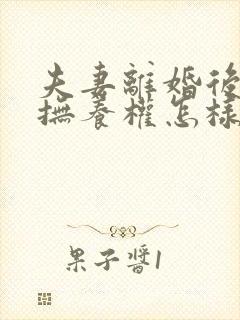 夫妻離婚後
撫養權怎樣
果子醬1